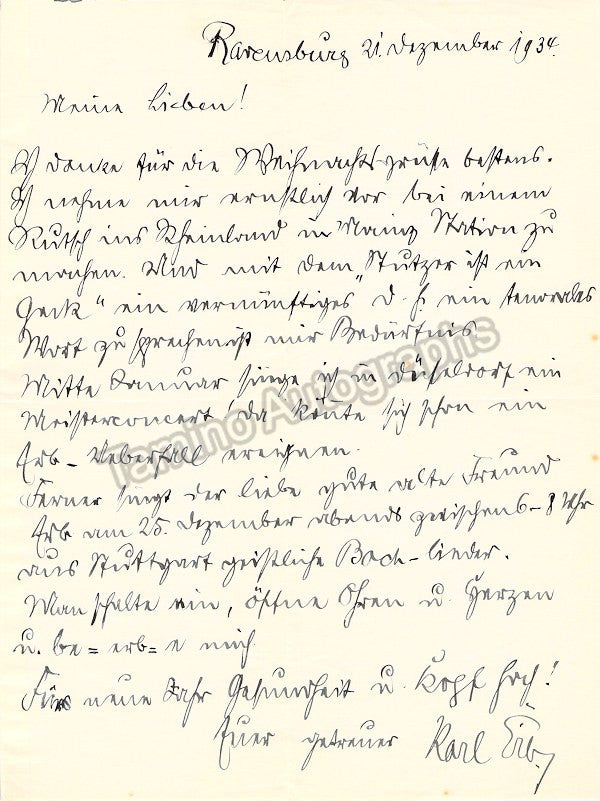 Ravensburg 21. Dezember 1934.
Meine Lieben!
Ich danke für die Weihnachtsgrüsse bestens.
Ich nehme mir ernstlich vor bei einem
Rutsch ins Rheinland in Mainz Station zu
machen. Und mit dem „Stutzer ist ein
Geck" ein vernünftiges d. h. ein tenorales
Wort zu sprechen ist mir Bedürfnis
Mitte Januar singe ich in Düsseldorf ein
Meisterconcert, da könnte sich schon ein
Erb-Ueberfall ereignen.
Ferner singt der liebe gute alte Freund
Erb am 25. Dezember abends zwischen 6-8 Uhr
aus Stuttgart geistliche Bach-lieder.
Man schalte ein, öffne Ohren u. Herzen
u. be=erb=e mich.
Fürs neue Jahr Gesundheit u. Kopf hoch!
Euer getreuer Karl Erb
Tamino Autographs